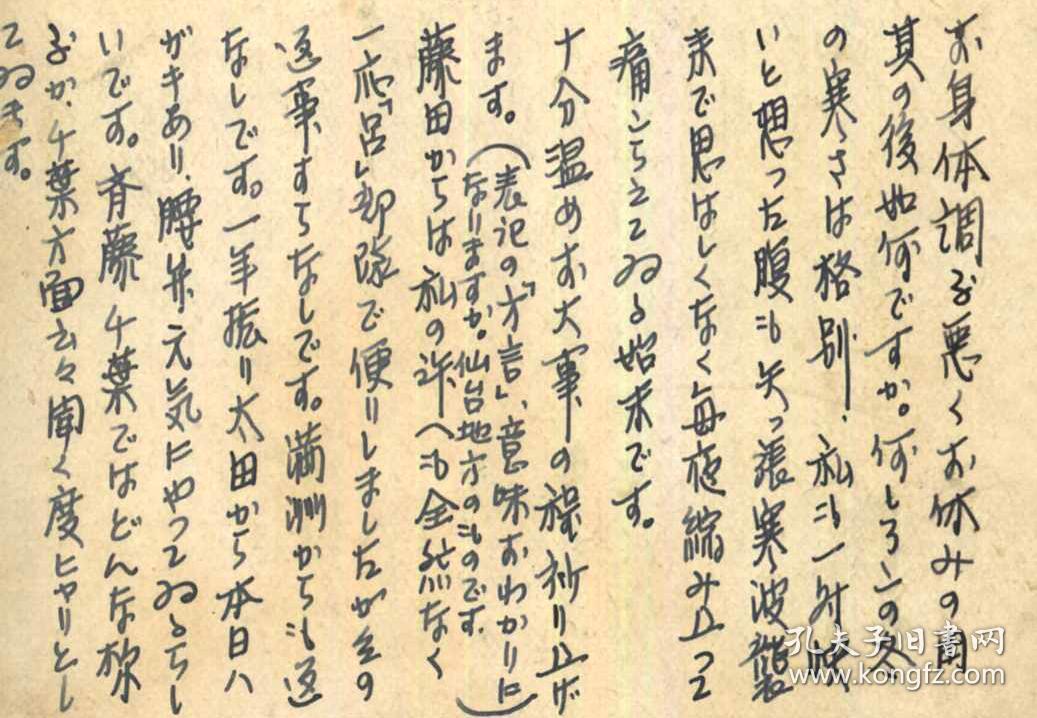 お身体調子悪くお休みの由
其の後如何ですか。何しろこの冬
の寒さは格別、私も一対
いと想った腹も矢っ張寒波襲
来で思はしくなく毎夜編み立つて
痛こらえてゐる始末です。
十分温めお大事の程祈り上げ
ます。(表記の「方言」、意味おわかりに
なりますか。仙台地方のものです。)
藤田からは私の許へも全然なく
一応「呂」部隊で便りしましたが其の
返事すらなしです。満洲からも返
なしです。一年振り太田から本日ハ
ガキあり、腰弁元気にやつてゐるらし
いです。斉藤千葉ではどんな様
子か、千葉方面云々聞く度ヒヤリとし
てゐます。
孔夫子旧書网
www.kongfz.com